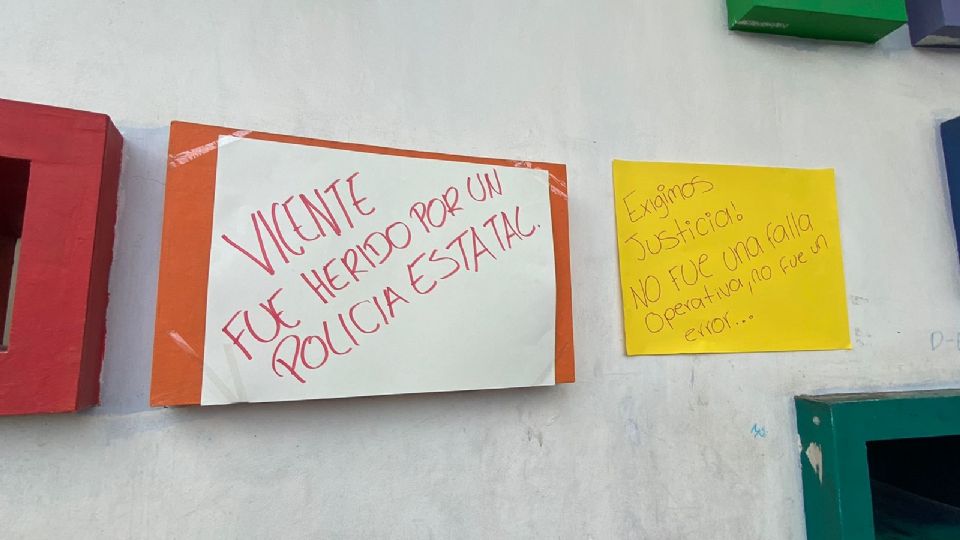 VICENTE
FUE HERIDO POR UN
POLICIA ESTATAL.
Exigimos
Justicia!
NO FUE una falla
Operativa, no fue un
error...